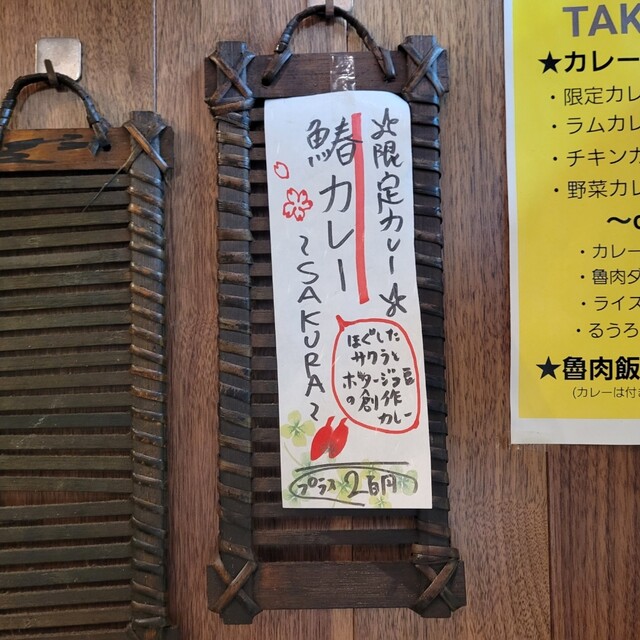 ☆限定カレー☆
鰆カレー
〜SAKURA〜
ほぐした
サクラと
ポタージュ風
の創作
カレー
プラス 2百円
TAK
★カレー
・限定カレ
・ラムカレ
・チキンカ
・野菜カレ
・カレー
・魯肉ダ
・ライス
・るうろ
★魯肉飯
(カレーは付き